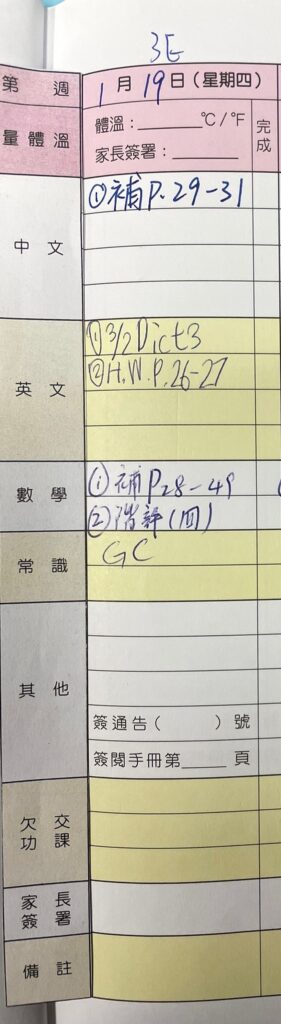 3E
第 週 1月19日(星期四)
量體溫 體溫：_____°C/°F 完成
家長簽署：_____
中文 ①補P.29-31
英文 ①3/2 Dict3
②H.W.P.26-27
數學 ①補P28-49
②階評(四)
常識 GC
其他
簽通告( )號
簽閱手冊第____頁
欠交功課
家長簽署
備註